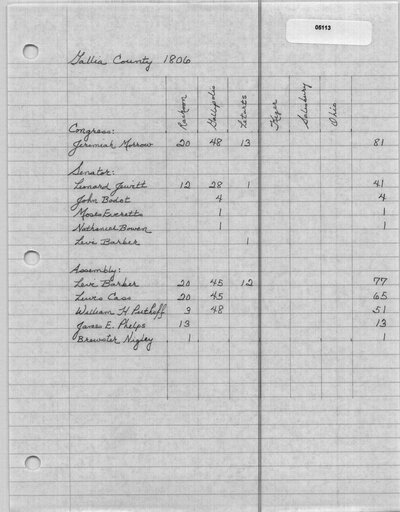 05113
Gallia County 1806
Racoon Gallipolis Letarts Kiger Salisbury Ohio
Congress:
Jeremiah Morrow 20 48 13 81
Senator:
Leonard Jewitt 12 28 1 41
John Bodot 4 4
Moses Everetts 1 1
Nathaniel Bowen 1 1
Levi Barber 1
Assembly:
Levi Barber 20 45 12 77
Lewis Cass 20 45 65
William H Puthoff 3 48 51
James E. Phelps 13 13
Brewster Nigley 1 1